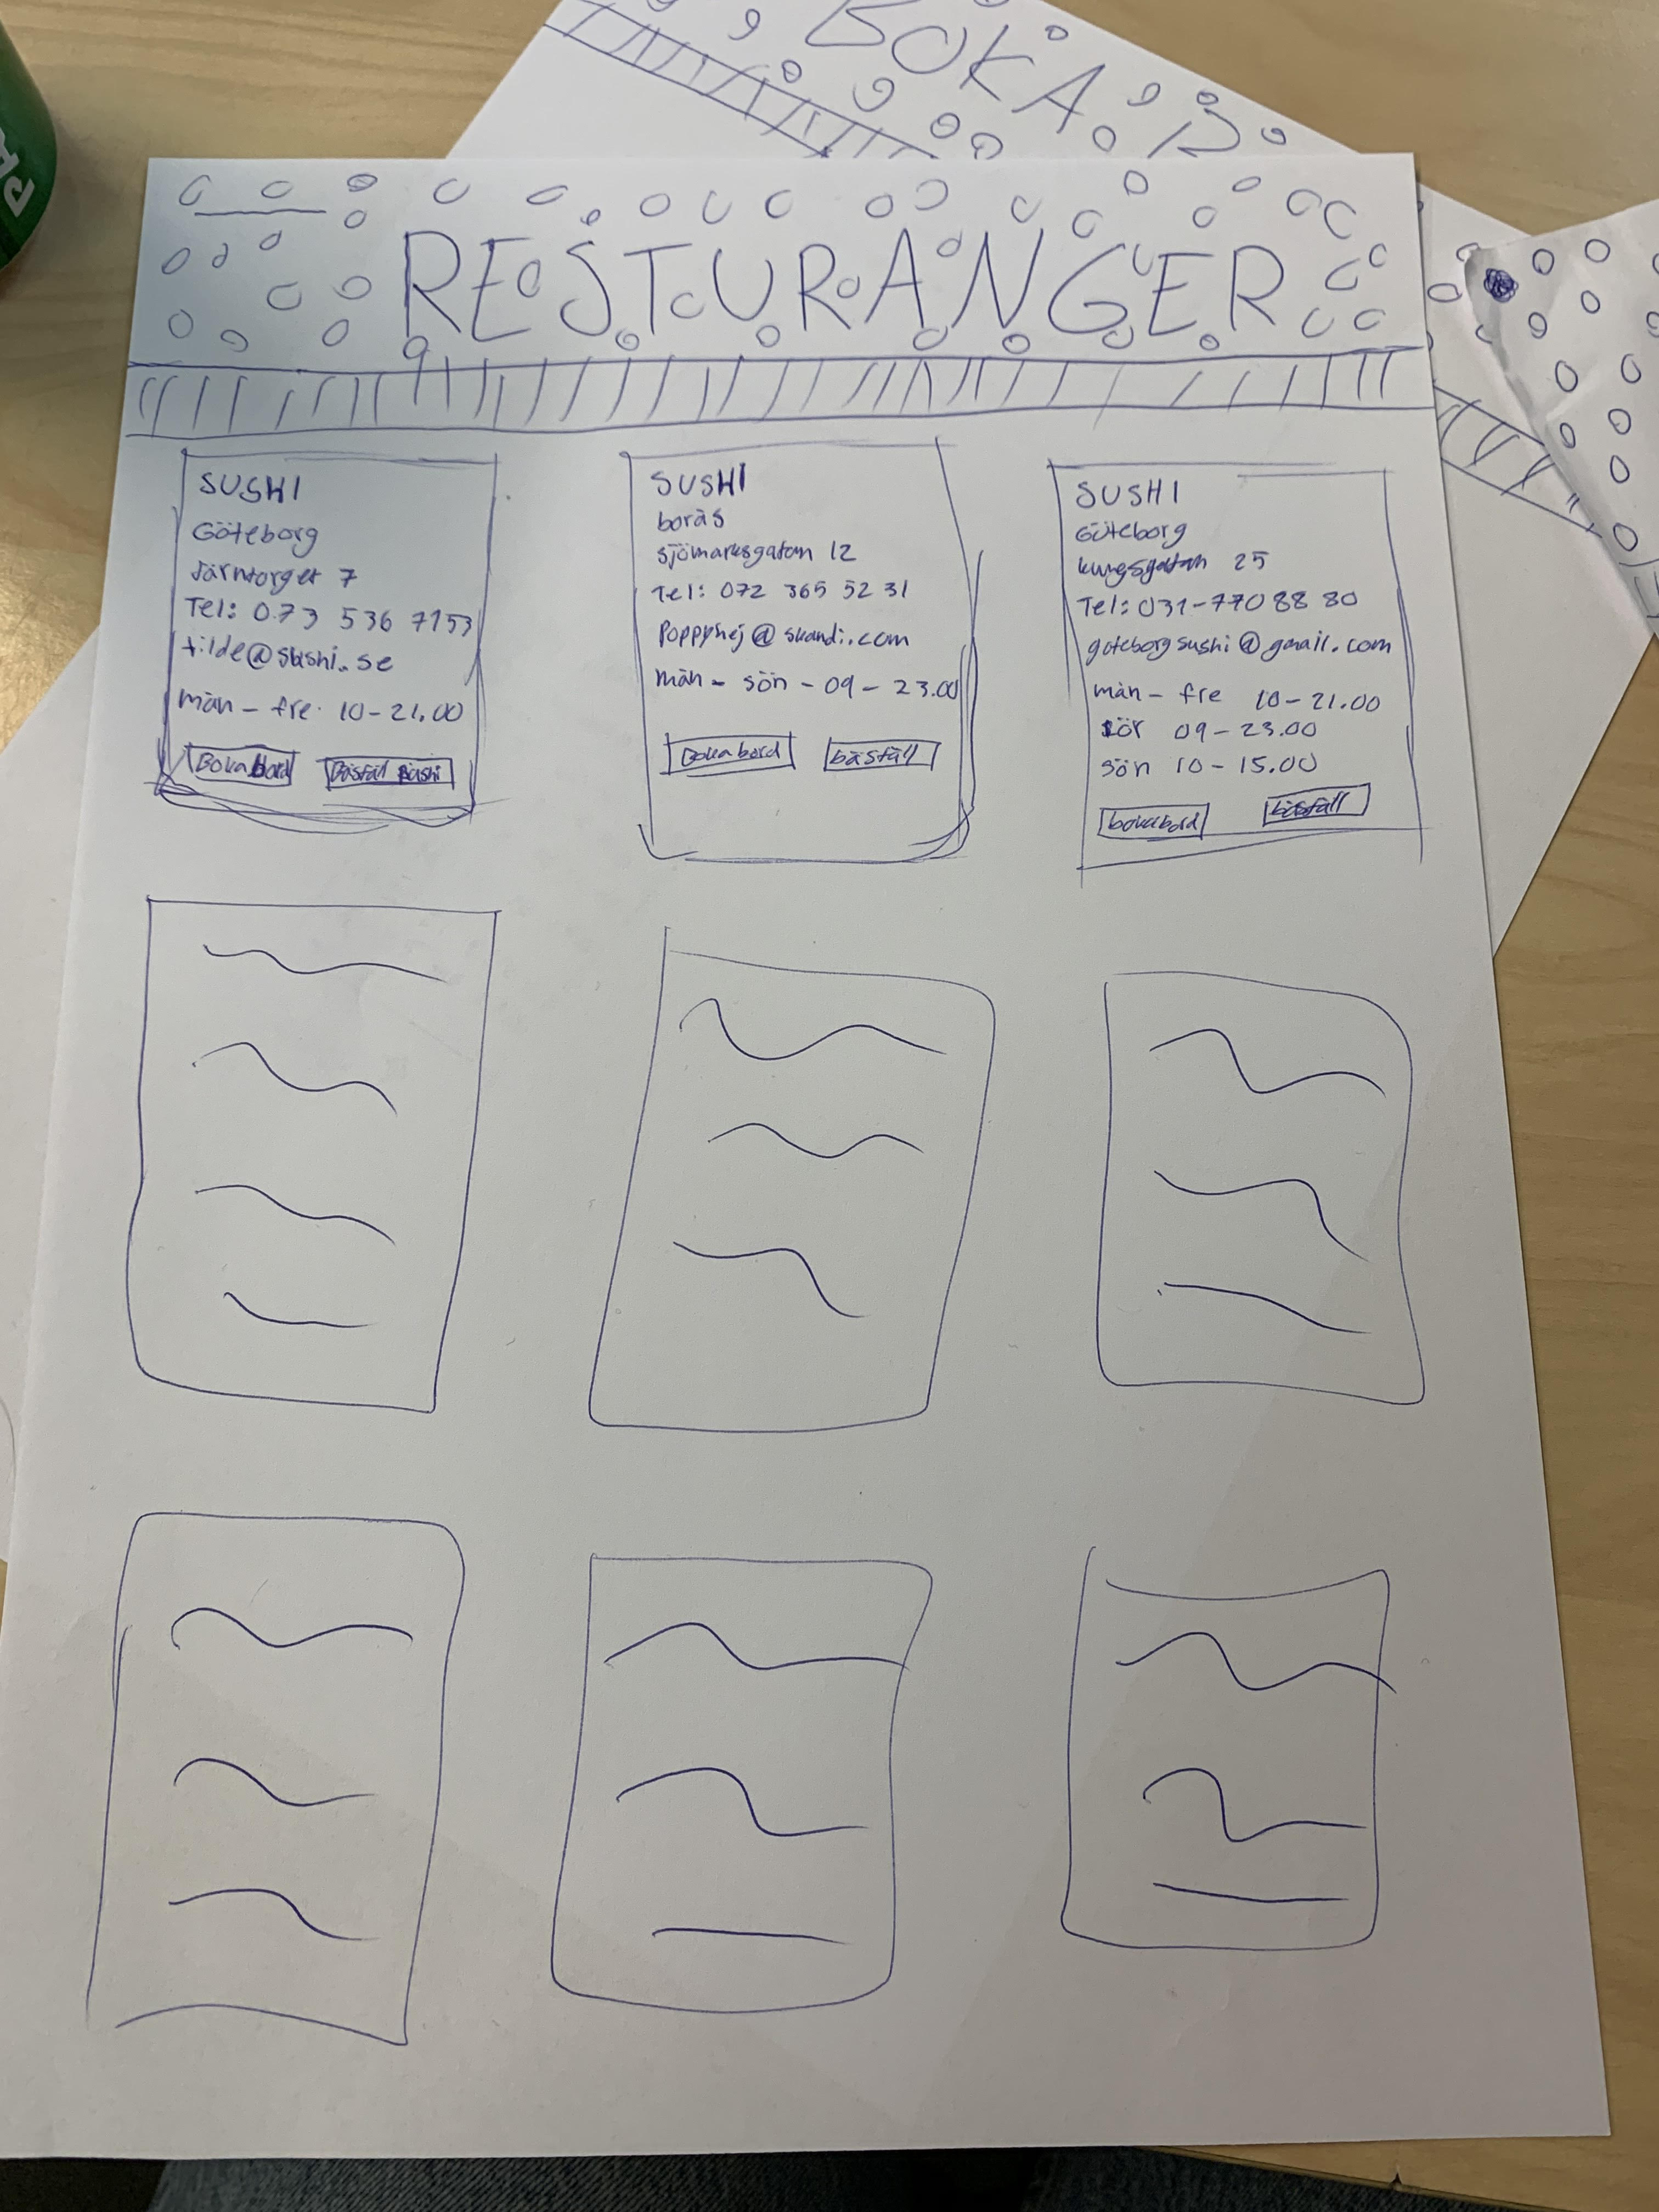 BOKA
RESTURANGER
SUSHI
Göteborg
Järntorget 7
Tel: 073 536 7153
tilde@sushi.se
mån - fre 10-21.00
Boka bord
Bäställ sushi
SUSHI
borås
sjömarksgatan 12
Tel: 072 365 52 31
Poppyhej@skandi.com
mån - sön - 09 - 23.00
Boka bord
bäställ
SUSHI
Göteborg
kungsgatan 25
Tel: 031-770 88 80
goteborgsushi@gmail.com
mån - fre 10-21.00
lör 09-23.00
sön 10-15.00
boka bord
bäställ